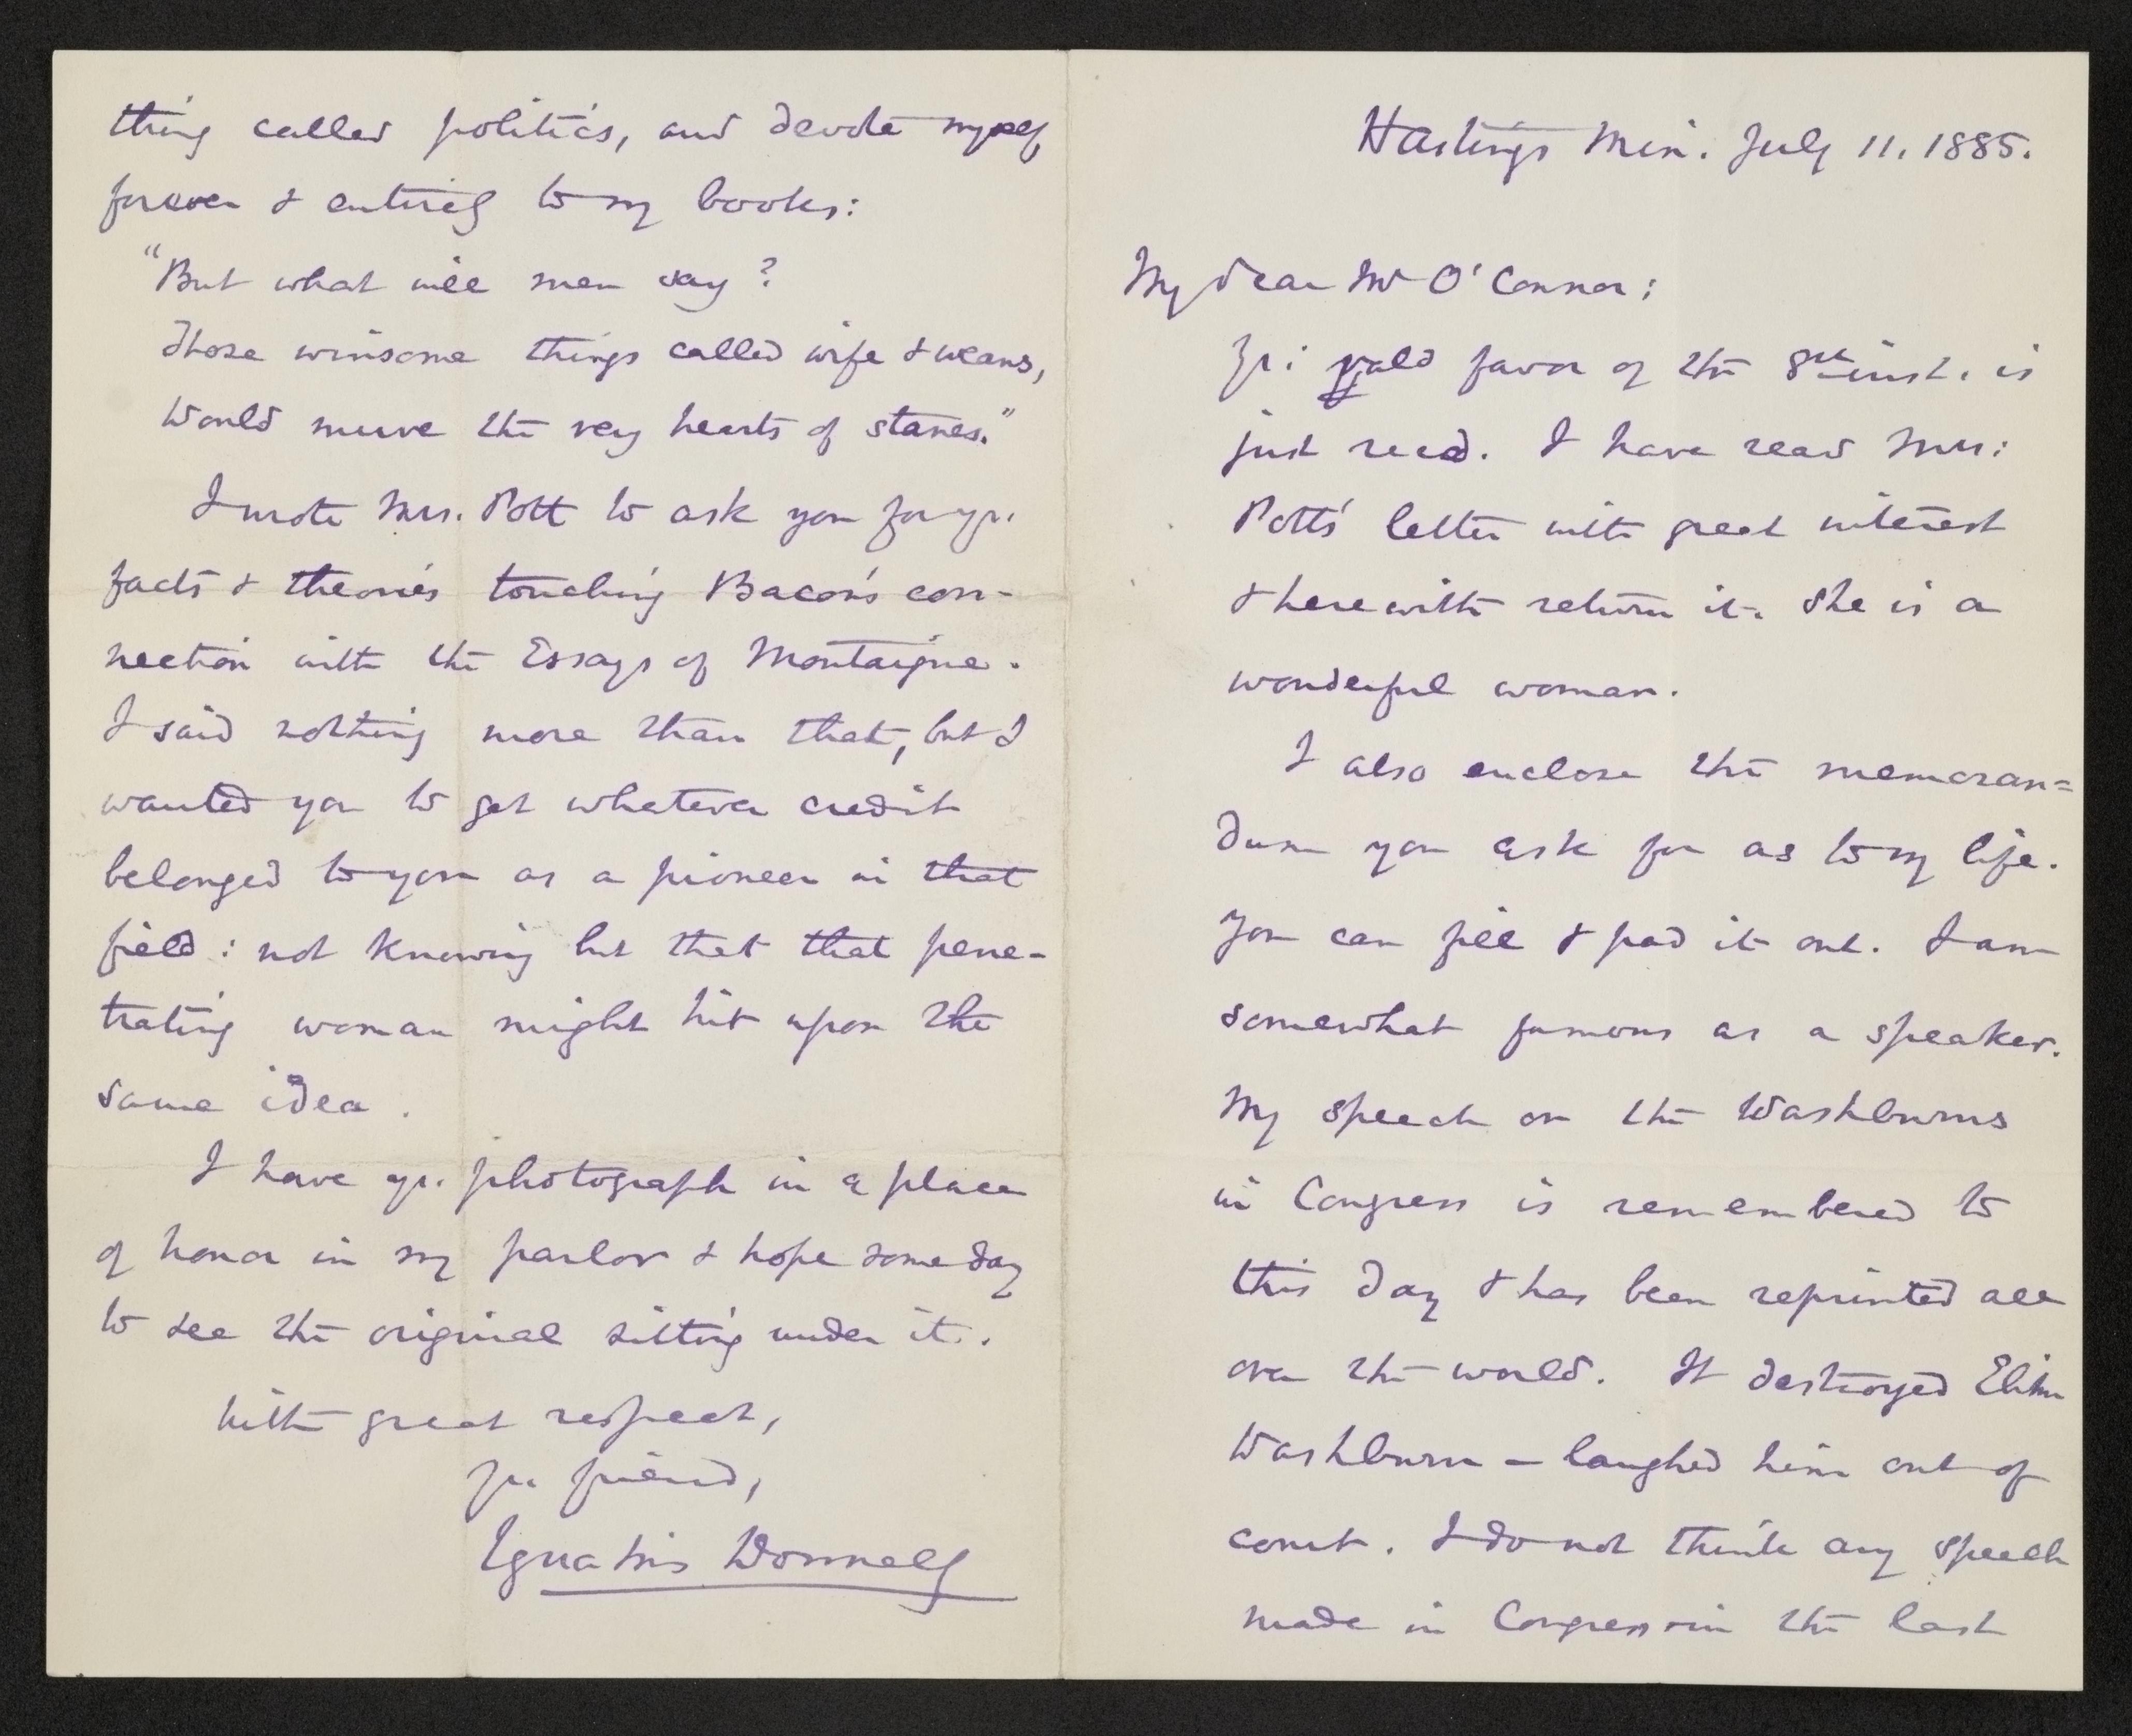 Hastings Min. July 11. 1885.
My dear Mr O'Connor;
Yr: vald favor of the 8th inst. is
just recd. I have read Mrs:
Potts' letter with great interest
& herewith return it. She is a
wonderful woman.
I also enclose the memoran=
dum you ask for as to my life.
You can fill & pad it out. I am
somewhat famous as a speaker.
My speech on the Washburns
in Congress is remembered to
this day & has been reprinted all
over the world. It destroyed Elihu
Washburn – laughed him out of
court. I do not think any speech
made in Congress in the last
thing called politics, and devote myself
forever & entirely to my books:
"But what will men say?
Those winsome things called wife & weans,
Would muve the very hearts of stanes."
I wrote Mrs. Pott to ask you for yr.
facts & theories touching Bacon's con-
nection with the Essays of Montaigne.
I said nothing more than that, but I
wanted you to get whatever credit
belonged to you as a pioneer in that
field: not knowing but that that pene-
trating woman might hit upon the
same idea.
I have yr. photograph in a place
of honor in my parlor & hope some day
to see the original sitting under it.
With great respect,
yr. friend,
Ignatius Donnelly